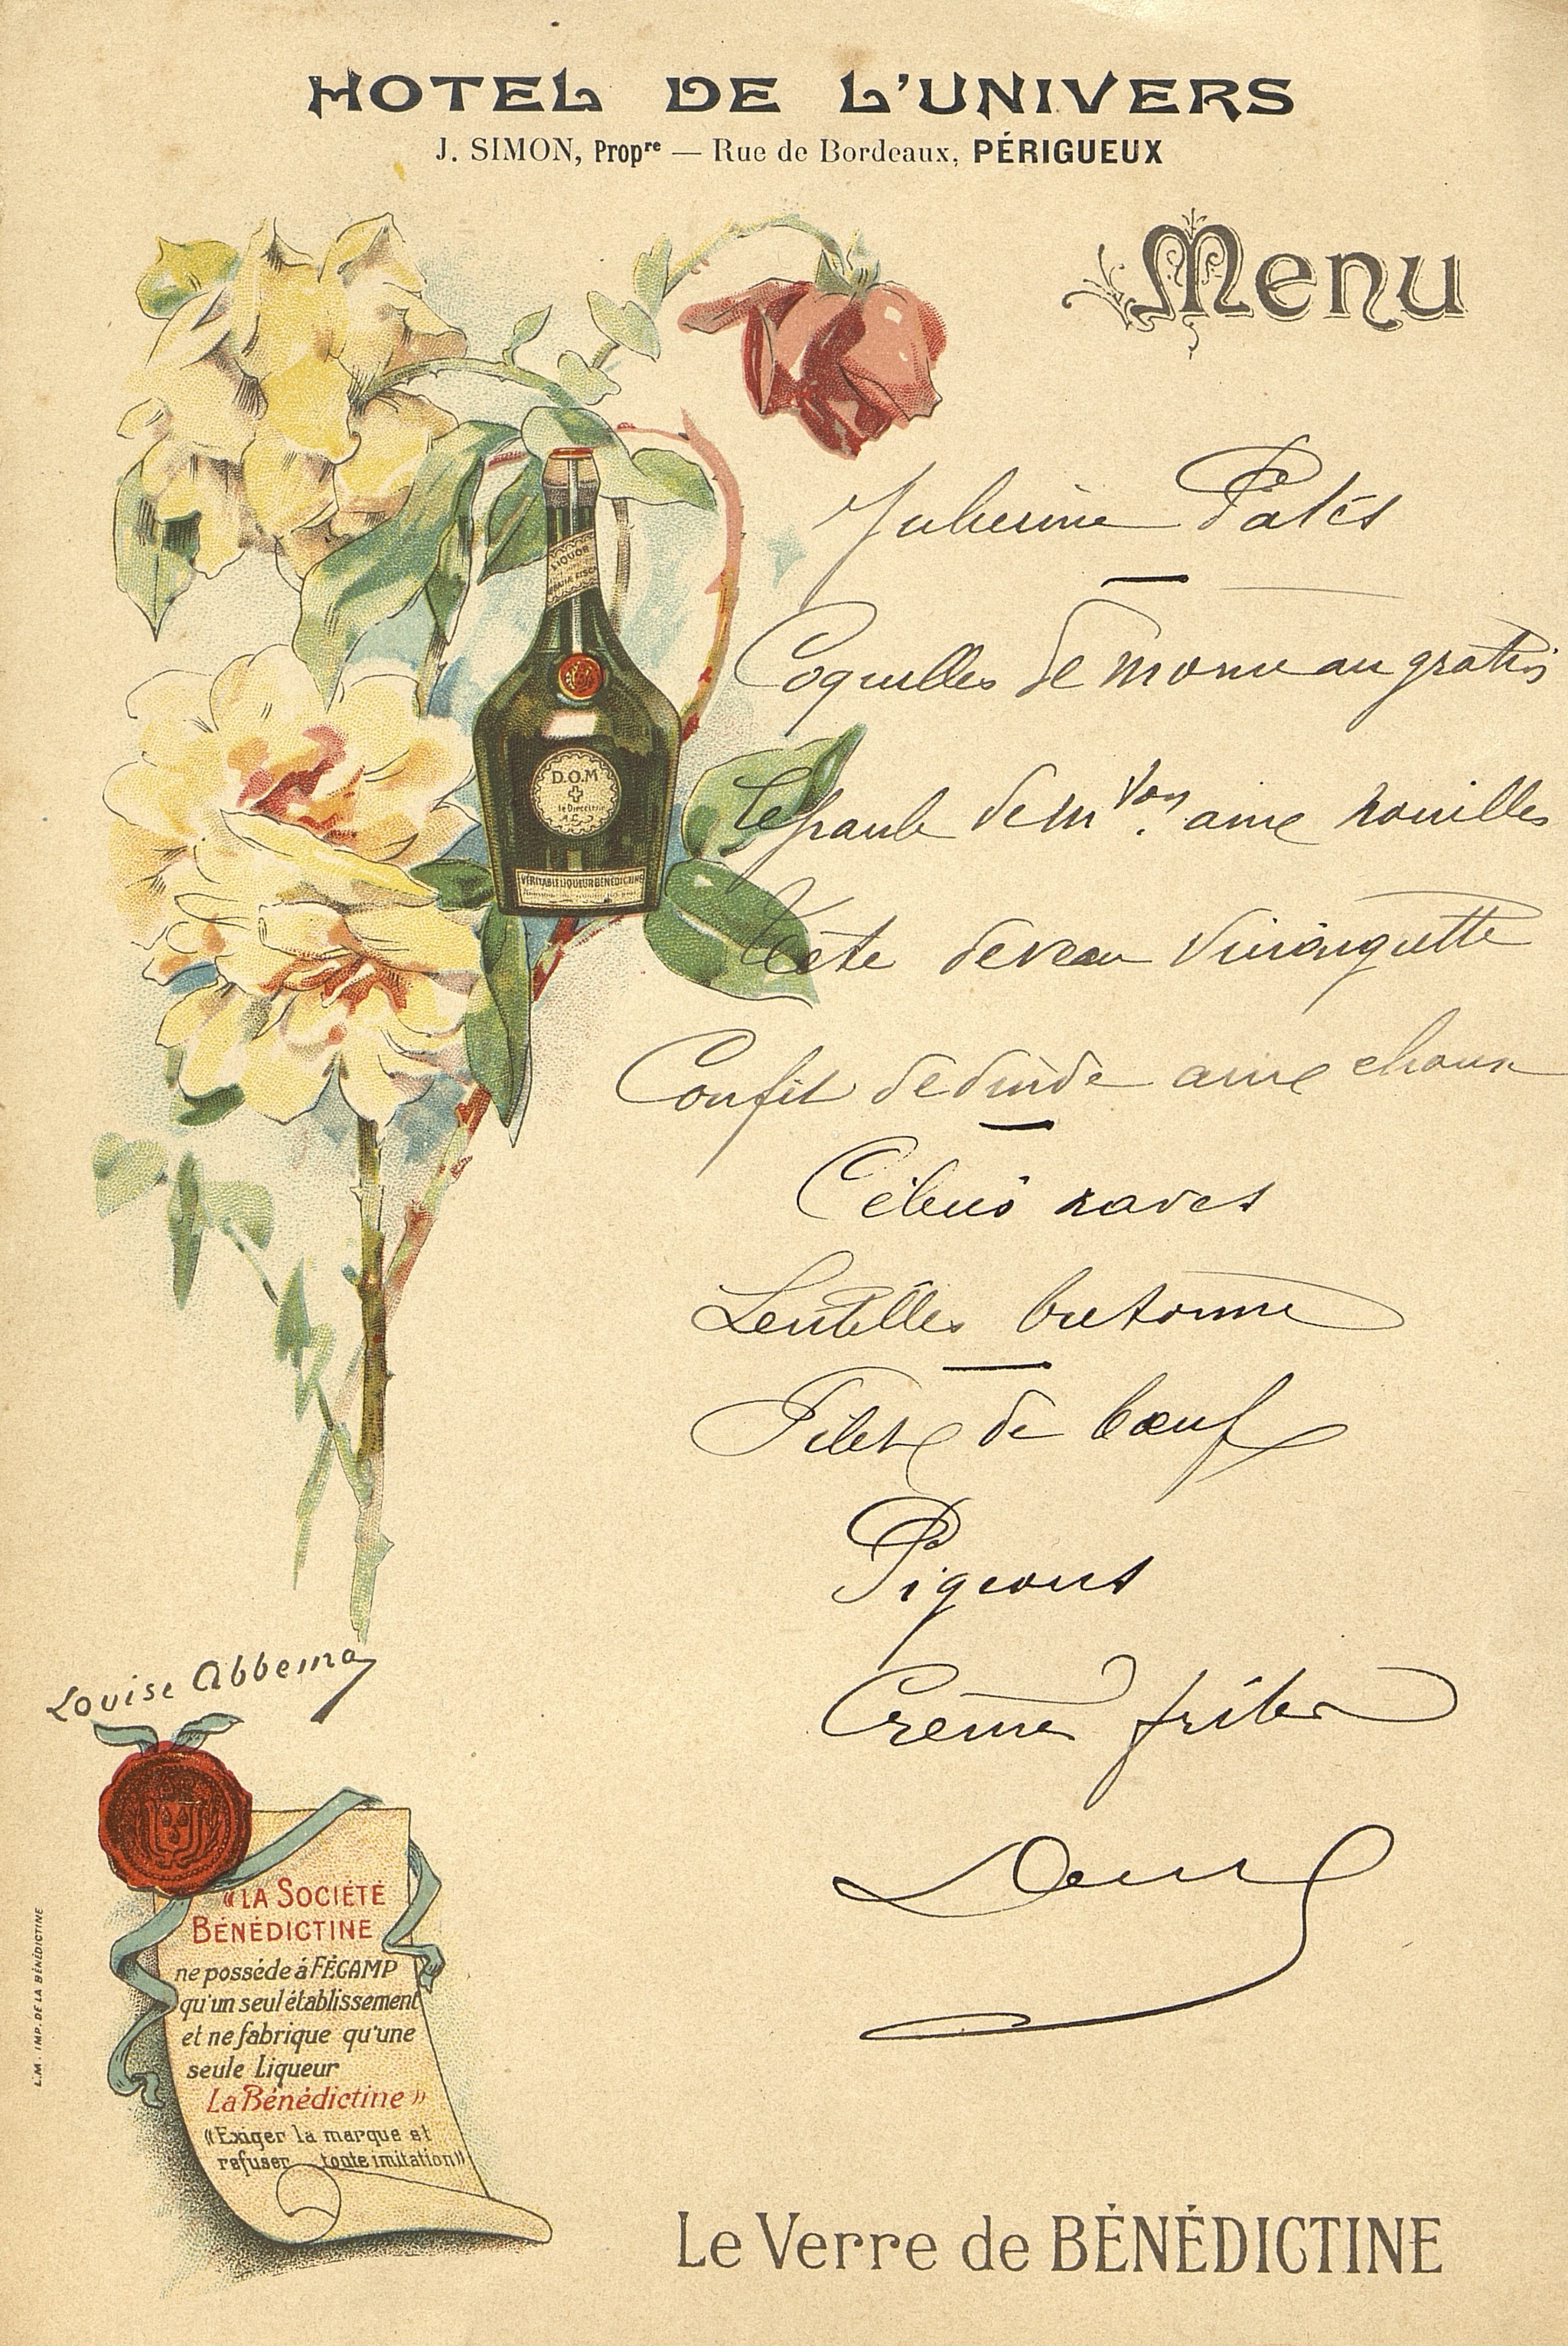 HOTEL DE L'UNIVERS
J. SIMON, Propre — Rue de Bordeaux, PÉRIGUEUX
Menu
Julienne Patés
Coquilles de morue au gratin
Epaule de mton avec nouilles
Tête de veau Vinaigrette
Confit de dinde avec choux
Céleris raves
Lentilles bretonne
Filet de bœuf
Pigeons
Crème frite
LIQUOR
D.O.M
le Directeur
VÉRITABLE LIQUEUR BÉNÉDICTINE
Louise Abbema
«LA SOCIÉTÉ
BÉNÉDICTINE
ne posséde á FÉCAMP
qu'un seul établissement
et ne fabrique qu'une
seule Liqueur
La Bénédictine»
«Exiger la marque et
refuser toute imitation»
L.M. IMP. DE LA BÉNÉDICTINE
Le Verre de BÉNÉDICTINE